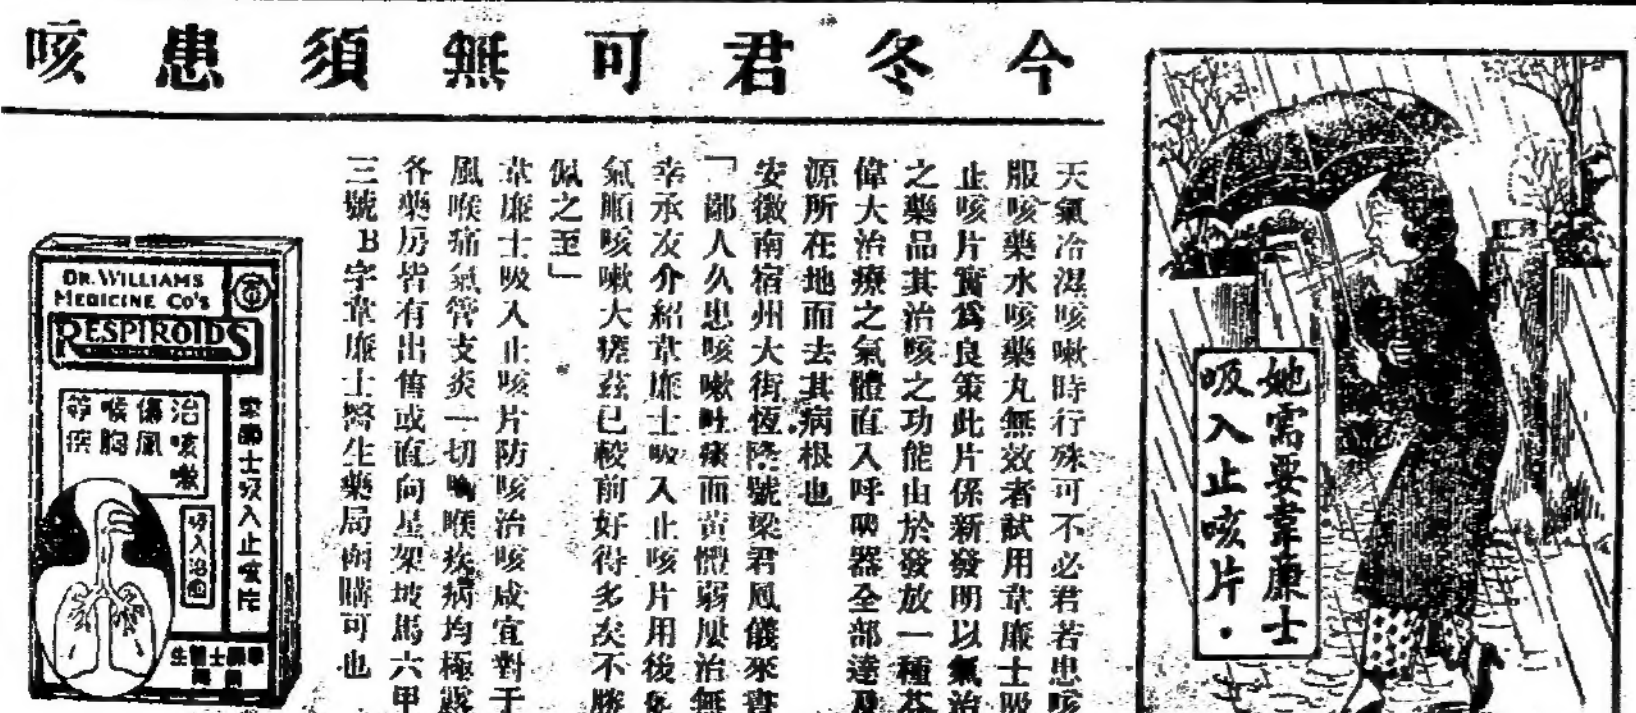 今冬君可無須患咳
她需要韋廉士
吸入止咳片．
天氣冷濕咳嗽時行殊可不必君若患咳
服咳藥水咳藥丸無效者試用韋廉士吸
止咳片實爲良策此片係新發明以氣治
之藥品其治咳之功能由於發放一種芬
偉大治療之氣體直入呼吸器全部達及
源所在地而去其病根也
安徽南宿州大街恆隆號梁君鳳儀來書
「鄙人久患咳嗽吐痰而黃體弱屢治無
幸承友介紹韋廉士吸入止咳片用後
氣順咳嗽大瘥茲已較前好得多矣不勝
佩之至」
韋廉士吸入止咳片防咳治咳咸宜對于
風喉痛氣管支炎一切胸喉疾病均極
各藥房皆有出售或直向星架坡馬六甲
三號B字韋廉士醫生藥局函購可也
DR. WILLIAMS
MEDICINE CO'S
RESPIROIDS
韋廉士吸入止咳片
治咳嗽
傷風
喉胸
等疾
吸入治愈
韋廉士醫生
藥局